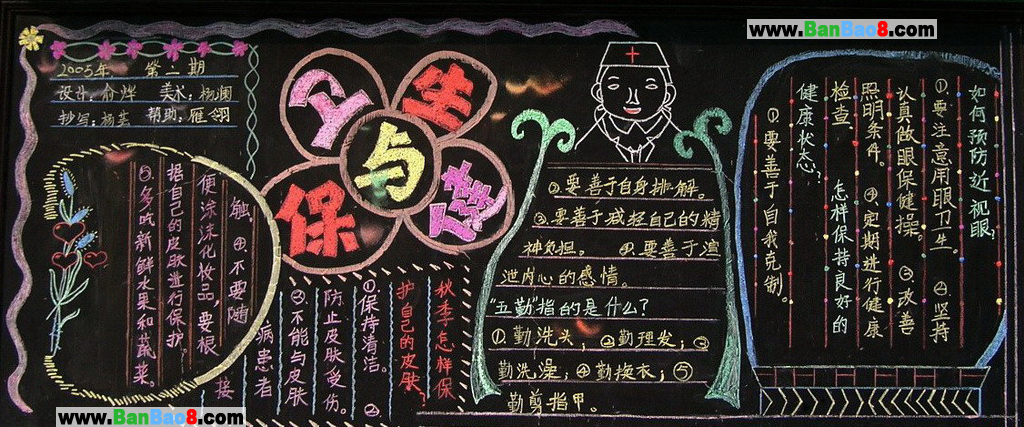 www.BanBao8.com
2005年 第二期
设计:俞烨 美术:杨澜
抄写:杨 帮助:雁翎
卫生与保健
如何预防近视眼?
①要注意用眼卫生。②坚持
认真做眼保健操。③改善
照明条件。④定期进行健康
检查。 怎样保持良好的
健康状态?
①要善于自我克制。
②要善于自身排解。
③要善于减轻自己的精
神负担。 ④要善于渲
泄内心的感情。
"五勤"指的是什么?
①勤洗头;②勤理发;③
勤洗澡;④勤换衣;⑤
勤剪指甲。
秋季怎样保
护自己的皮肤?
①保持清洁。②
防止皮肤受伤。
③不能与皮肤
病患者
接
触。④不要随
便涂沫化妆品,要根
据自己的皮肤进行保护。
⑤多吃新鲜水果和蔬菜。
www.BanBao8.com